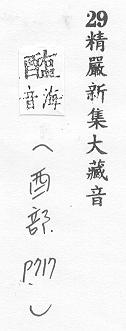 29精嚴新集大藏音
海
音
(酉部 P717)